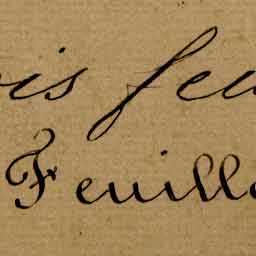 is feu
Feuill